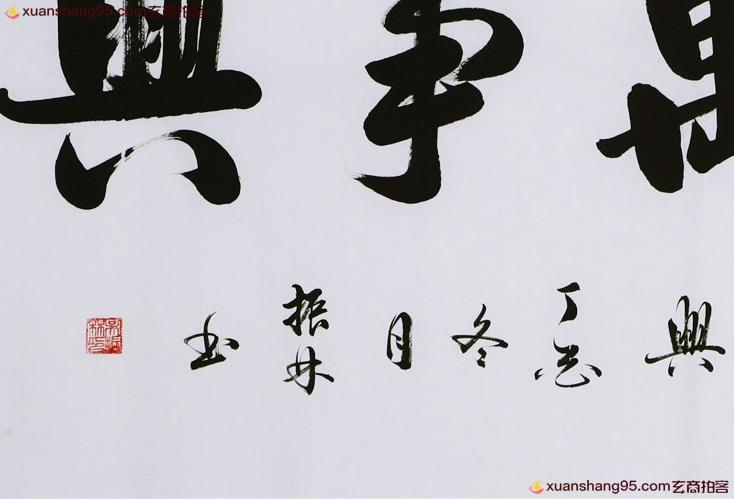 xuanshang95.com玄商拍客
事興
興丁冬月振林书
xuanshang95.com玄商拍客